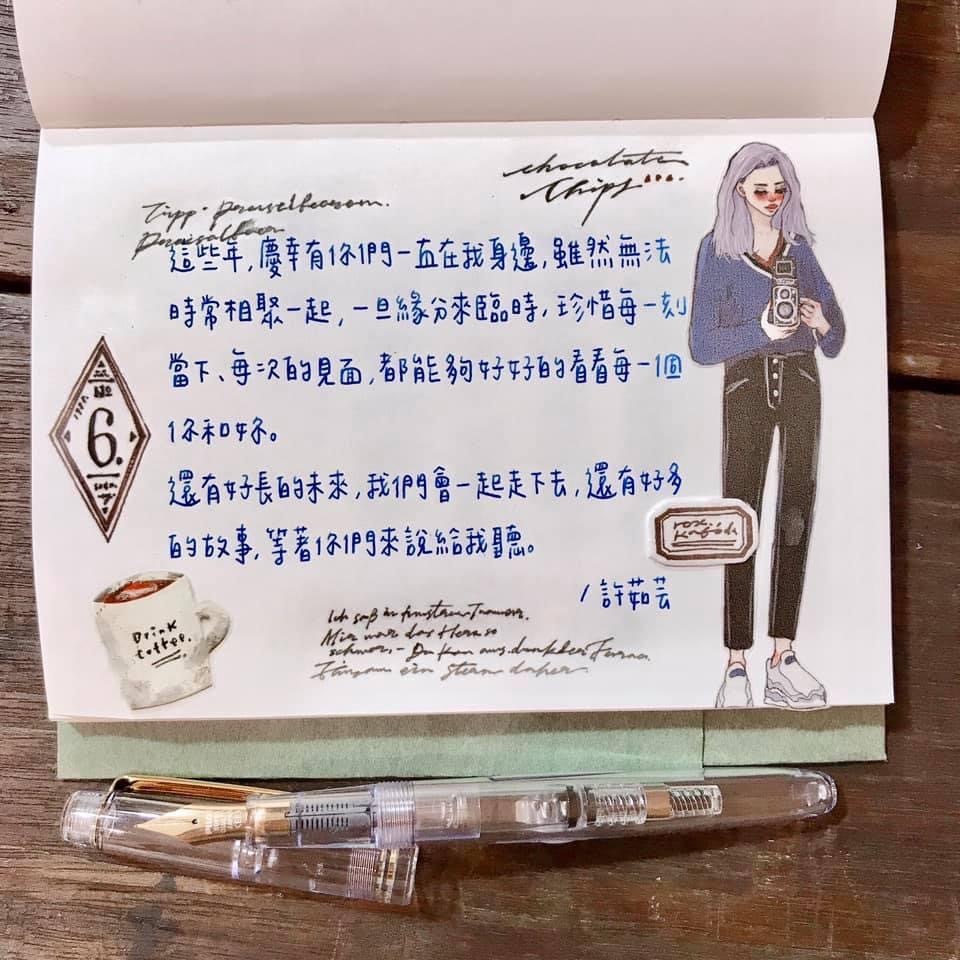 chocolate
Chips
這些年,慶幸有你們一直在我身邊,雖然無法
時常相聚一起,一旦緣分來臨時,珍惜每一刻
當下、每次的見面,都能夠好好的看看每一個
你和妳。
還有好長的未來,我們會一起走下去,還有好多
的故事,等著你們來說給我聽。
/許茹芸
6.
Drink
Coffee.
Ich saß
Mir war das Herz so
schwer,- Da kam aus dunkler
ein Stern daher